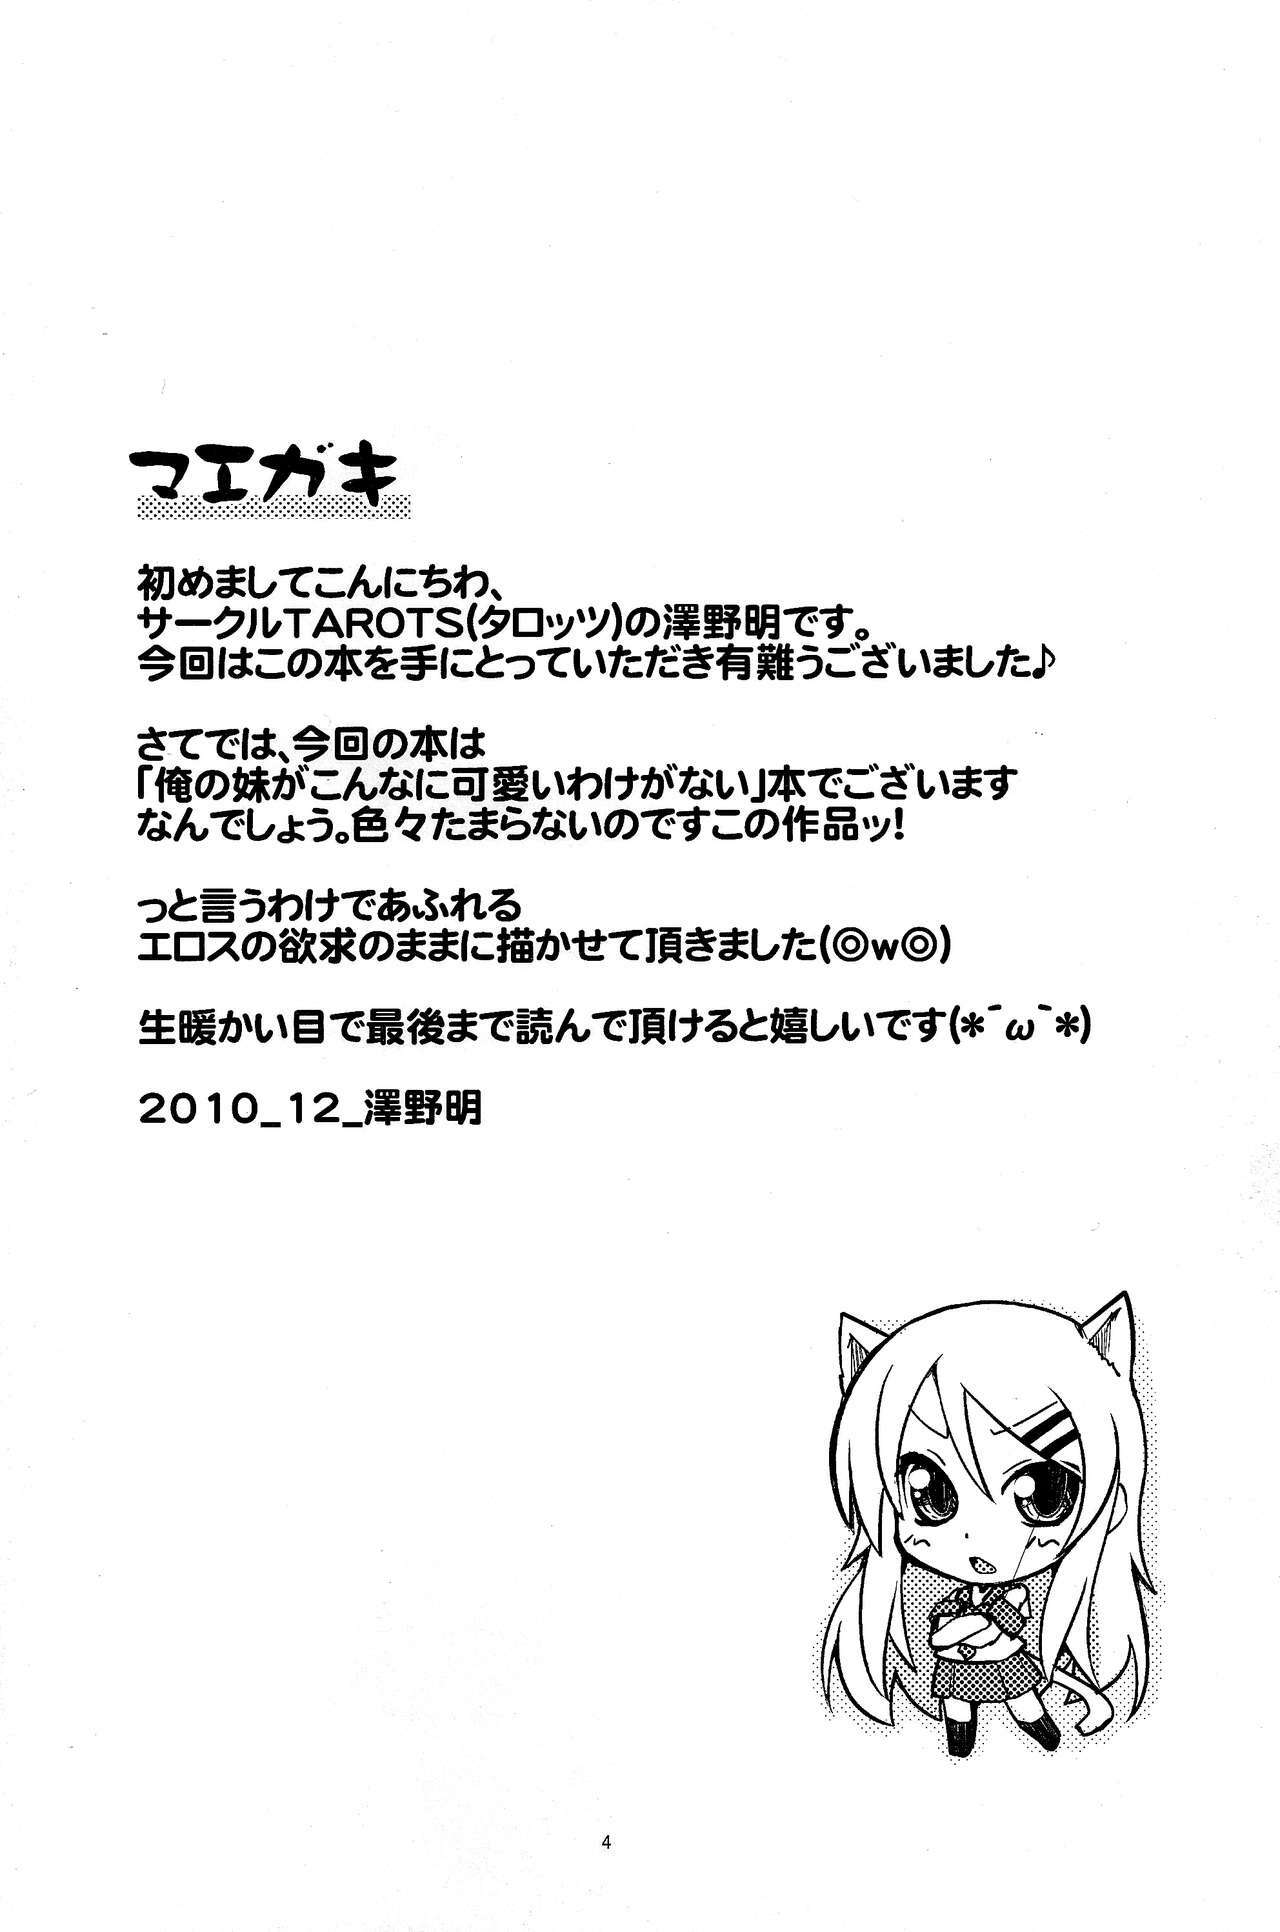 マエガキ
初めましてこんにちわ、
サークルTAROTS(タロッツ)の澤野明です。
今回はこの本を手にとっていただき有難うございました♪
さてでは、今回の本は
「俺の妹がこんなに可愛いわけがない」本でございます
なんでしょう。色々たまらないのですこの作品ッ!
っと言うわけであふれる
エロスの欲求のままに描かせて頂きました(◎w◎)
生暖かい目で最後まで読んで頂けると嬉しいです(*´ω`*)
2010_12_澤野明
4